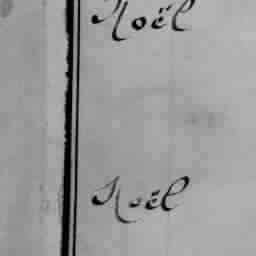 Noël
Noël